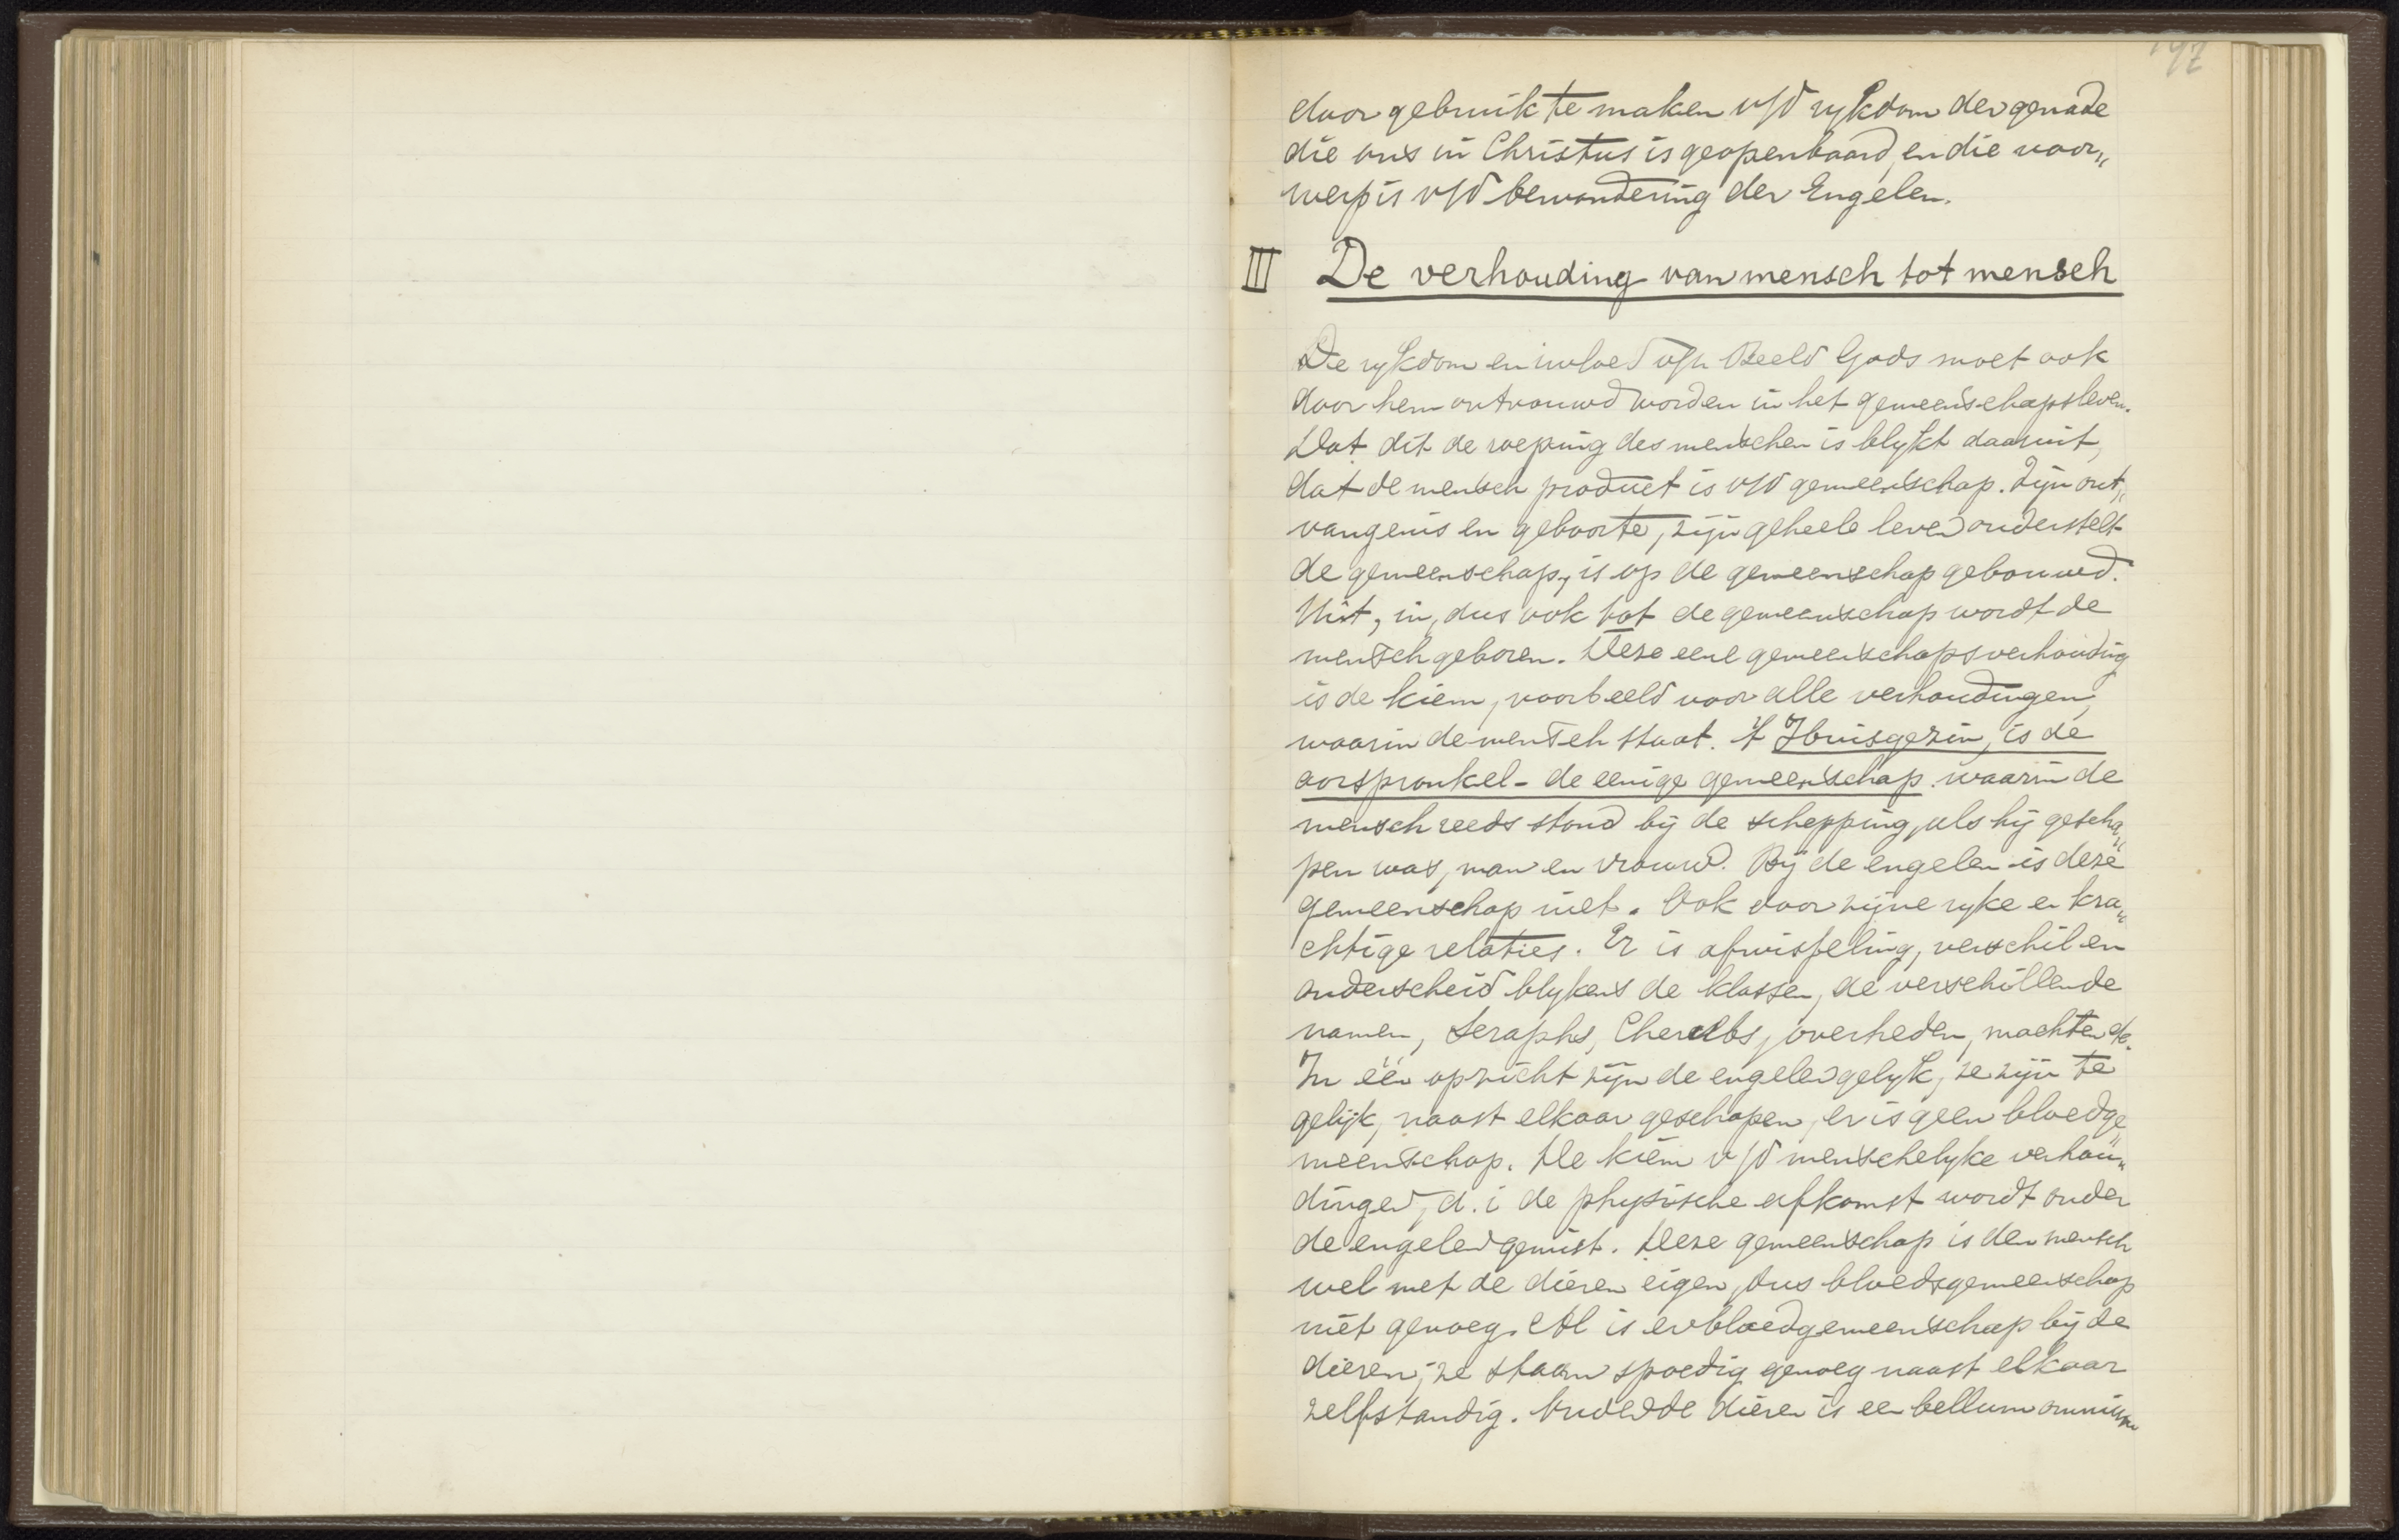 197
door gebruik te maken v/d rykdom der genade
die ons in Christus is geopenbaard, en die voor„
werp is v/d bewondering der Engelen.
III De verhouding van mensch tot mensch
De rykdom en invloed v/h Beeld Gods moet ook
door hem ontvouwd worden in het gemeenschapsleven.
Dat dit de roeping des menschen is blykt daaruit,
dat de mensch product is v/d gemeenschap. Zijn ont„
vangenis en geboorte, zijn geheele leven onderstelt
de gemeenschap, is op de gemeenschap gebouwd.
Uit, in, dus ook tot de gemeenschap wordt de
mensch geboren. Deze eene gemeenschapsverhouding
is de kiem, voorbeeld voor alle verhoudingen,
waarin de mensch staat. 't Huisgezin, is de
oorspronkel- de eenige gemeenschap waarin de
mensch reeds stond bij de schepping, als hij gescha„
pen was, man en vrouw. Bij de engelen is deze
gemeenschap niet. Ook door zijne ryke en kra„
chtige relaties. Er is afwisseling, verschil en
onderscheid blykens de klassen, de verschillende
namen, Seraphs, Cherubs, overheden, machten etc.
In één opzicht zijn de engelen gelyk, ze zijn te
gelijk, naast elkaar geschapen, er is geen bloedge„
meenschap. De kiem v/d menschelyke verhou„
dingen, d.i de physische afkomst wordt onder
de engelen gemist. Deze gemeenschap is den mensch
wel met de dieren eigen, dus bloedsgemeenschap
niet genoeg. Al is er bloedgemeenschap bij de
dieren, ze staan spoedig genoeg naast elkaar
zelfstandig. Onder de dieren is een bellum omnium